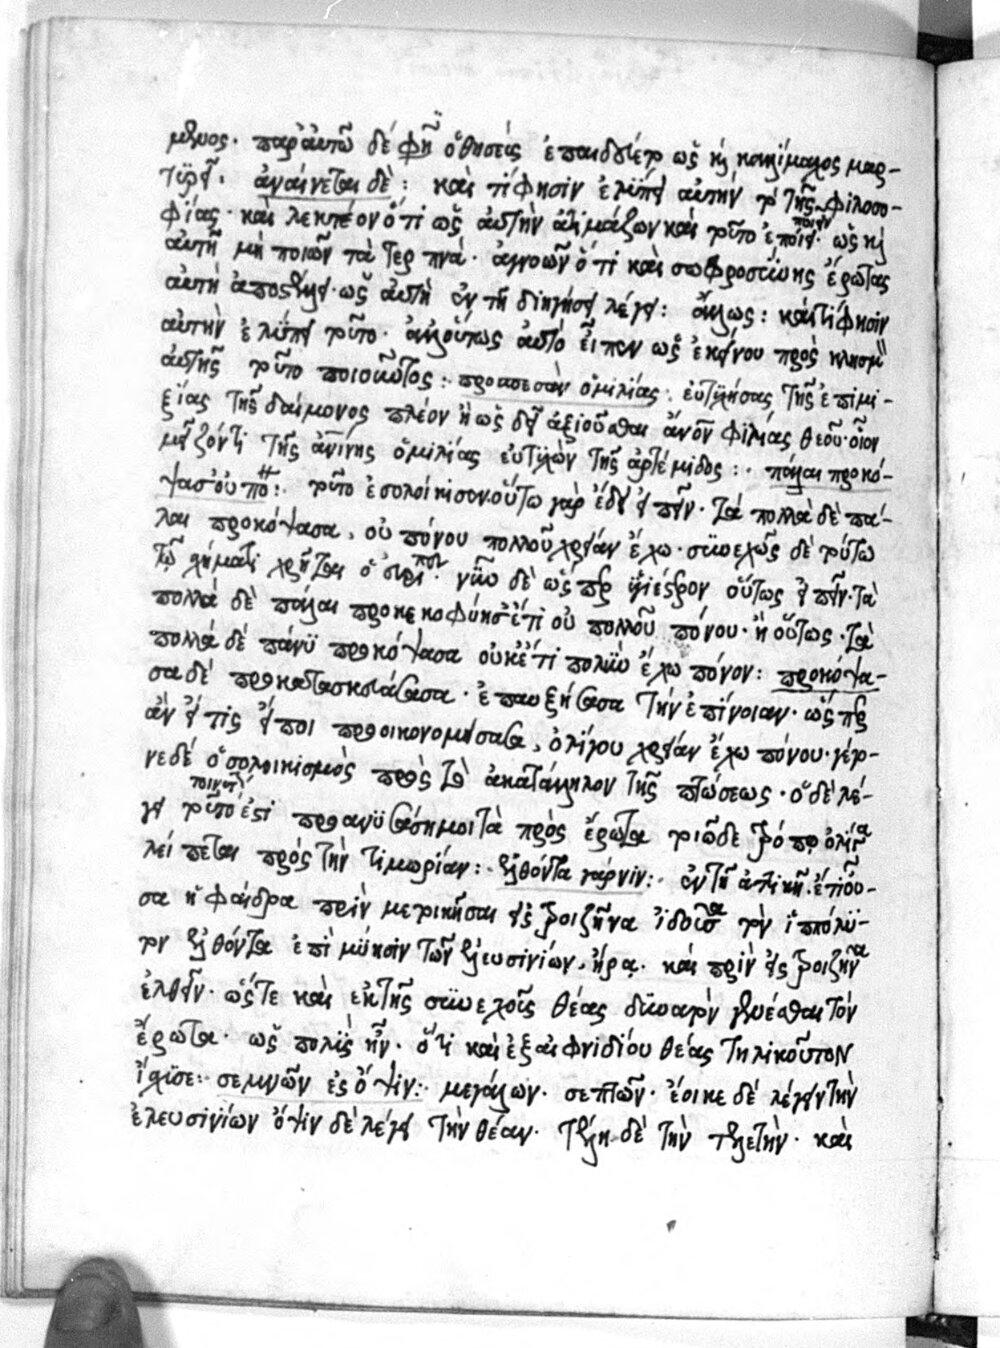 μενος· παρ' αὐτοῦ δέ φη ὁ θησεὺς ἐπαιδεύετο ὡς καὶ καλλίμαχος μαρ-
τυρεῖ· ἀναίνεται δὲ: καὶ τί φησὶν ἐλύπει αὐτὴν τὸ τῆς φιλοσο-
φίας· καὶ λεκτέον ὅτι ὡς αὐτὴν ἀτιμάζων καὶ τοῦτο ἐποίει· ὡς καὶ
αὐτῆ μὴ ποιῶν τὰ τερπνά· ἀγνοῶν ὅτι καὶ σωφροσύνης ἔρωτας
αὐτὴ ἀποστέλλει· ὡς αὐτὴ ἐν τῆ διηγήσει λέγει: ἄλλως: καὶ τί φησὶν
αὐτὴν ἐλύπει τοῦτο· ἀλλ' οὕτως αὐτὸ εἶπεν ὡς ἐκείνου πρὸς
αὐτῆς τοῦτο ποιοῦντος: προσπεσὼν ὁμιλίας: εὐτυχήσας τῆς ἐπιμι-
ξίας τῆς δαίμονος πλέον ἢ ὡς δεῖ ἀξιοῦσθαι ἀνον φιλίας θεοῦ· οἷον
μείζονι τῆς ἀνίνης ὁμιλίας εὐτυχῶν τῆς ἀρτέμιδος: πάλαι προκό-
ψασ' οὐ πο: τοῦτο ἐσολοίκισεν οὕτω γὰρ ἔδει εἰπεῖν· τὰ πολλὰ δὲ πά-
λαι προκόψασα, οὐ πόνου πολλοῦ χρείαν ἔχω· συνεχῶς δὲ τούτω
τῶ σχήματι χρῆται ὁ· νῦν δὲ ὥσπερ οὕτως εἰπεῖν· τὰ
πολλὰ δὲ πάλαι ἔτι οὐ πολλοῦ πόνου· ἢ οὕτως· τὰ
πολλὰ δὲ πάνυ προκόψασα οὐκέτι πολὺν ἔχω πόνον: προκόψα-
σα δὲ προκατασκευάσασα· ἐπαυξήσασα τὴν ἐπίνοιαν· ὥσπερ
ἂν εἴ τις εἴποι προοικονομήσασα, ὀλίγου χρείαν ἔχω πόνου· γέγο-
νε δὲ ὁ σολοικισμὸς πρὸς τὸ ἀκατάλληλον τῆς πτώσεως· ὃ δὲ λέ-
γει τοιοῦτό ἐστι προανύσασή μοι τὰ πρὸς ἔρωτα τοιῶδε τρόπω ὀλίγα
λείπεται πρὸς τὴν τιμωρίαν: ἐλθόντα γάρ νιν: ἐν τῆ ἀττικῆ ἔτι οὖ-
σα ἡ φαίδρα πρὶν μετοικῆσαι εἰς τροιζῆνα ἰδοῦσα τὸν ἱππόλυ-
τον ἐλθόντα ἐπὶ μύησιν τῶν ἐλευσινίων, ἤρα· καὶ πρὶν εἰς τροιζῆνα
ἐλθεῖν· ὥστε καὶ ἐκ τῆς συνεχοῦς θέας δυνατὸν γενέσθαι τὸν
ἔρωτα· ὡς πολὺς ἦν· ὅτι καὶ ἐξ αἰφνιδίου θέας τηλικοῦτον
ἴσχυσε: σεμνῶν ἐς ὄψιν: μεγάλων· σεπτῶν· ἔοικε δὲ λέγειν τὴν
ἐλευσινίων ὄψιν δὲ λέγει τὴν θέαν· τέλη δὲ τὴν τελετὴν· καὶ